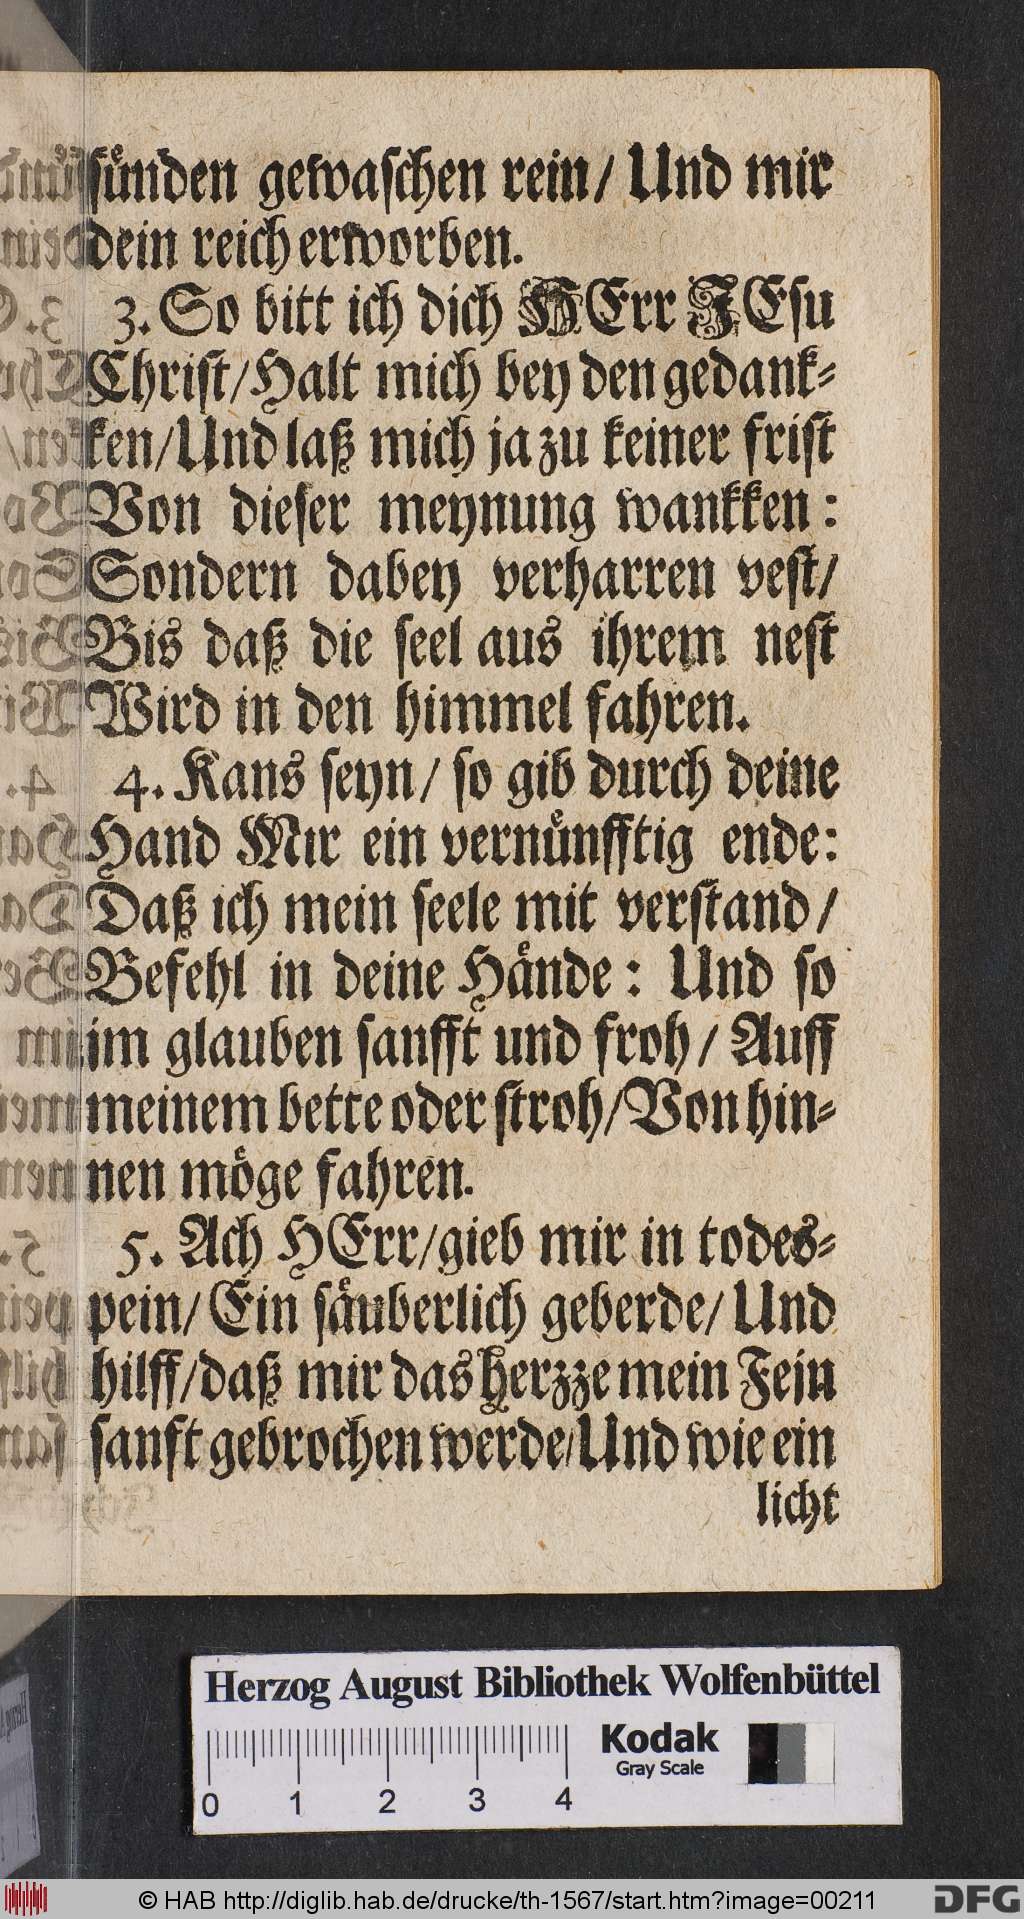 ſuͤnden gewaſchen rein/ Und mir
dein reich erworben.
3. So bitt ich dich HErr JEſu
Chriſt/Halt mich bey den gedank-
ken/Und laß mich ja zu keiner friſt
Von dieſer meynung wankken:
Sondern dabey verharren veſt/
Bis daß die ſeel aus ihrem neſt
Wird in den himmel fahren.
4. Kans ſeyn/ ſo gib durch deine
Hand Mir ein vernuͤnfftig ende:
Daß ich mein ſeele mit verſtand/
Befehl in deine Haͤnde: Und ſo
im glauben ſanfft und froh/ Auff
meinem bette oder ſtroh/Von hin-
nen moͤge fahren.
5. Ach HErr/gieb mir in todes-
pein/ Ein ſaͤuberlich geberde/ Und
hilff/daß mir das herzze mein Fein
ſanft gebrochen werde/Und wie ein
licht
Herzog August Bibliothek Wolfenbüttel
Kodak
Gray Scale
0 1 2 3 4
© HAB http://diglib.hab.de/drucke/th-1567/start.htm?image=00211
DFG